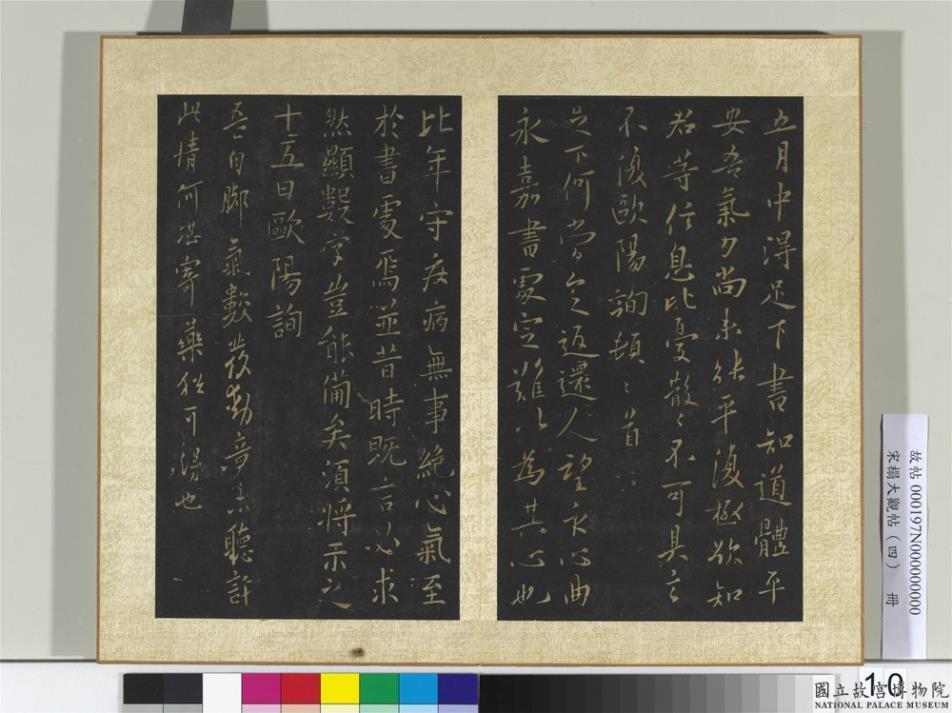 五月中得足下書知道體平
安吾氣力尚未能平復極欲知
君等信息比憂散〻不可具言
不復歐陽詢頓〻首〻
足下何當定返還人望永心曲
永嘉書處定難以為其心也
比年守疾病無事絶心氣至
於書處焉並昔時既言必求
然顯數字豈能備矣須將示之
十五日歐陽詢
吾自腳氣數發動竟未聽許
此情何堪寄藥猶可得也
故帖 000197N000000000
宋榻大觀帖(四) 冊
10
國立故宮博物院
NATIONAL PALACE MUSEUM